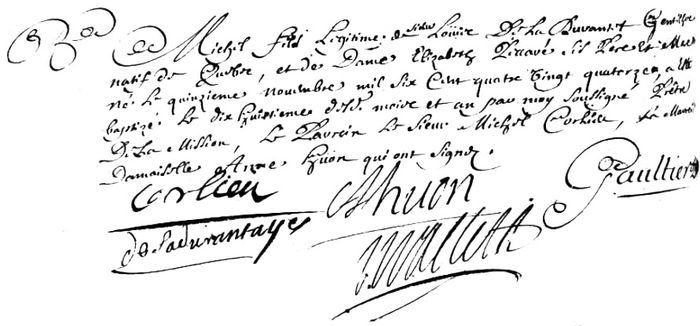 Michel fils Legitime de Sieur Louis De La Durantet Gentilho
natif de Quebec, et de Dame Elizabeth Pirave sil Pere Et Mere
né Le quinzieme novembre mil six Cent quatre Vingt quatorze, a Etté
baptizé Le dix huitieme desd. mois et an par moy soussigné Prêtre
De La Mission, Le Parein Le Sieur Michel Corlieu, La Mareine
Damaiselle Anne huon qui ont signez.
Corlieu Ahuon Gaultier
de Ladurantaye